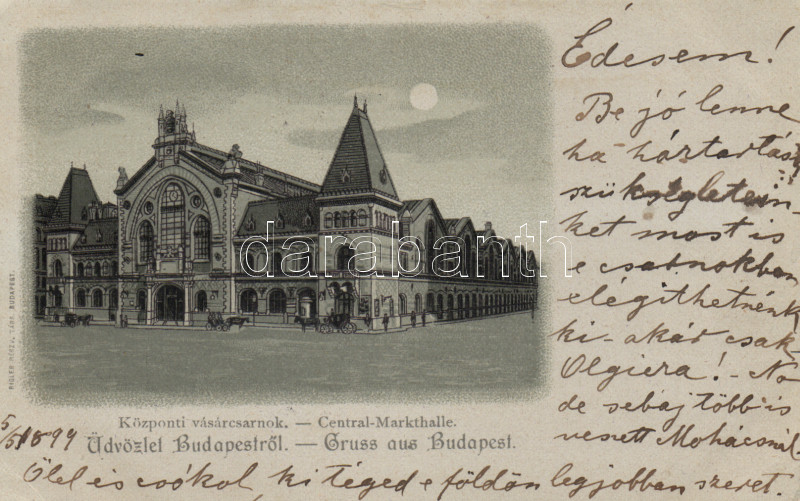 Édesem!
Be jó lenne
ha háztartás
szükségletein-
ket most is
e csarnokban
elégíthetnénk
ki - akár csak
Olgiera! - No
de sebaj több is
veszett Mohácsnál -
Ölel és csókol, ki téged e földön legjobban szeret.
5/5 1899
Központi vásárcsarnok. — Central-Markthalle.
Üdvözlet Budapestről. — Gruss aus Budapest.
BUDAPEST.
darabanth.com